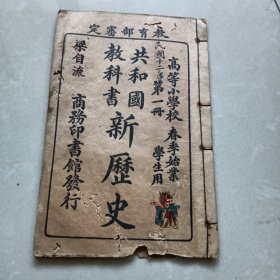 教育部審定
民國十二年
高等小學校 春季始業
第一冊 學生用
共和國
教科書
新歷史
商務印書館發行
梁自波